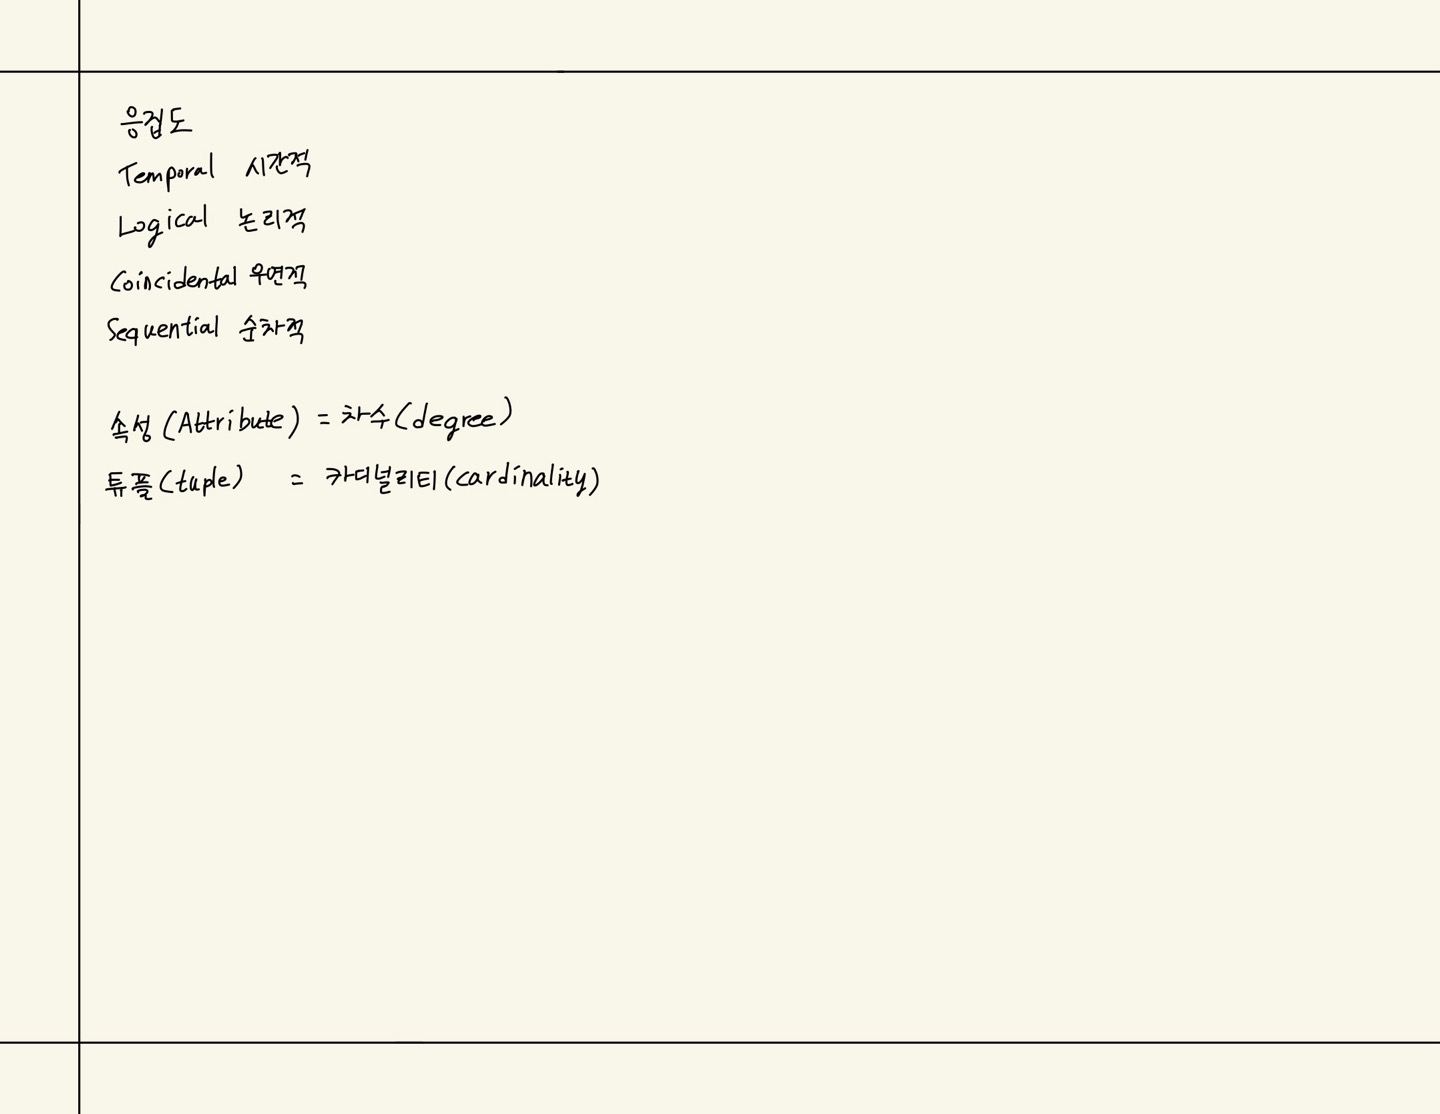 응집도
Temporal 시간적
Logical 논리적
Coincidental 우연적
Sequential 순차적
속성(Attribute) = 차수(degree)
튜플(tuple) = 카디널리티(cardinality)